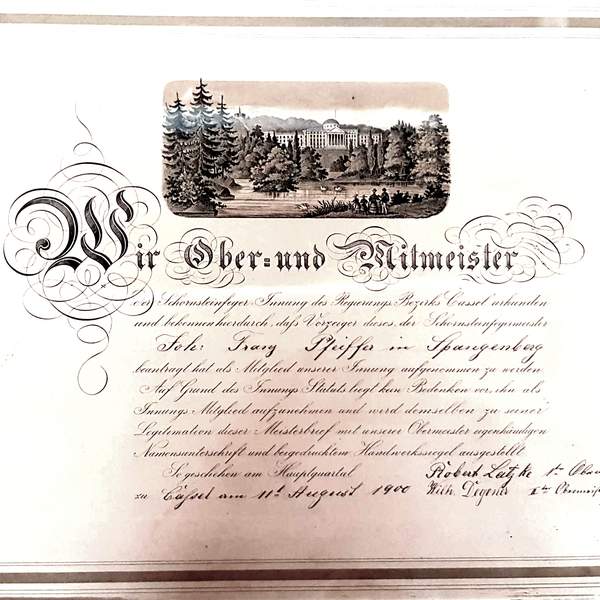 Wir Ober=und Mitmeister
der Schornsteinfeger Innung des Regierungs Bezirks Cassel urkunden
und bekennen hierdurch, daß Vorzeiger dieses der Schornsteinfegermeister
Joh: Franz Pfeiffer in Spangenberg
beantragt hat als Mitglied unserer Innung aufgenommen zu werden
Auf Grund des Innungs Statuts liegt kein Bedenken vor, ihn als
Innungs Mitglied aufzunehmen und wird demselben zu seiner
Legitimation dieser Meisterbrief mit unserer Obermeister eigenhändigen
Namensunterschrift und beigedrucktem Handwerkssiegel ausgestellt
So geschehen am Hauptquartal Robert 1ter
zu Cassel am 11t August 1900 Wilh. Degener